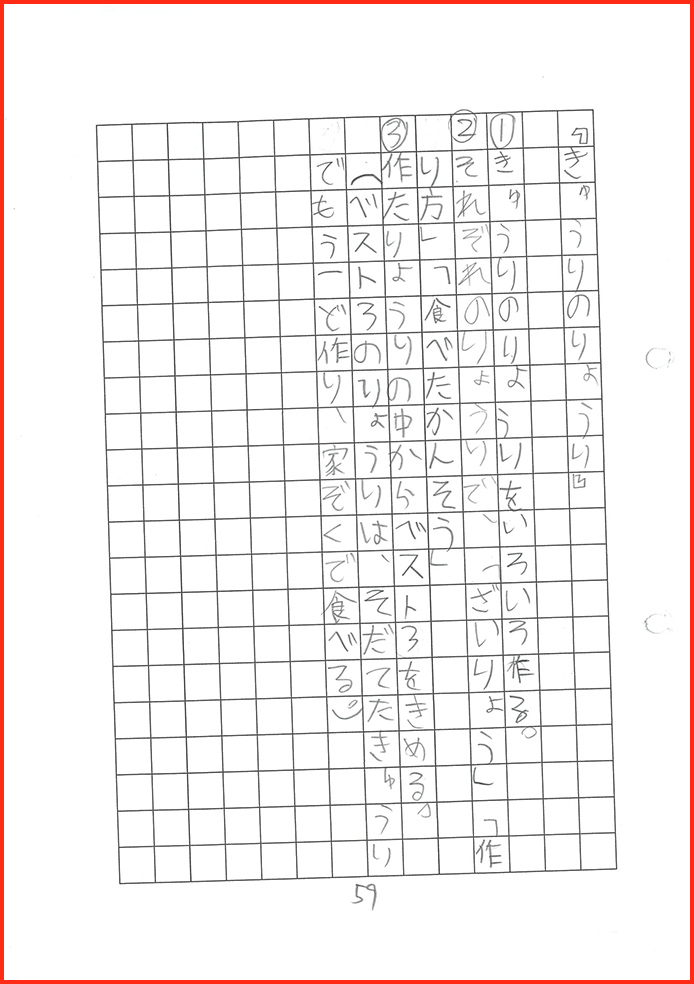 『きゅうりのりょうり』
①きゅうりのりょうりをいろいろ作る。
②それぞれのりょうりで、「ざいりょう」「作
り方」「食べたかんそう」
③作たりょうりの中からべストろを きめる。
(べストろのりょうりは、そだてたきゅうり
でもう一ど作り、家ぞくで食べる)
59